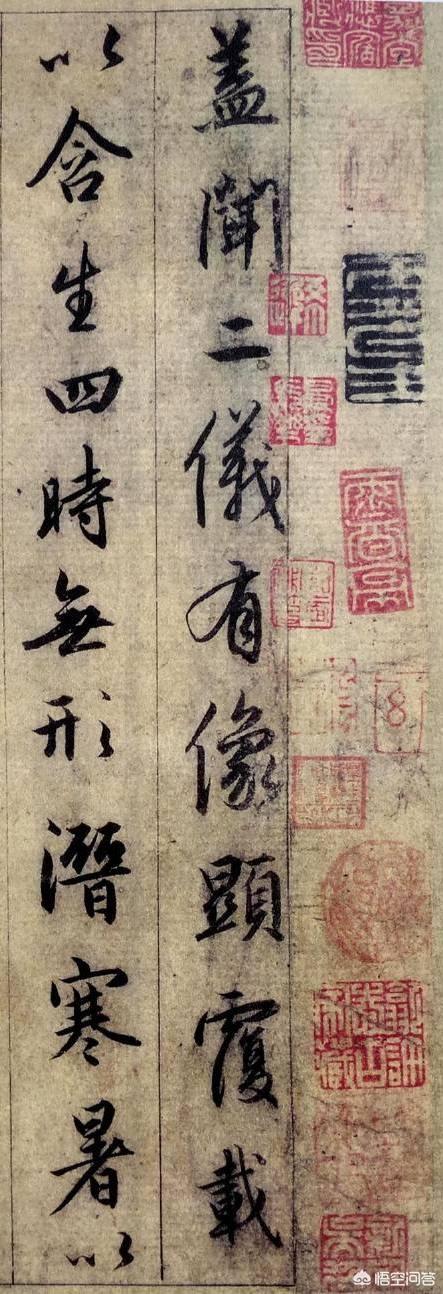 蓋聞二儀有像顯覆載
以含生四時無形潛寒暑以
悟空问答